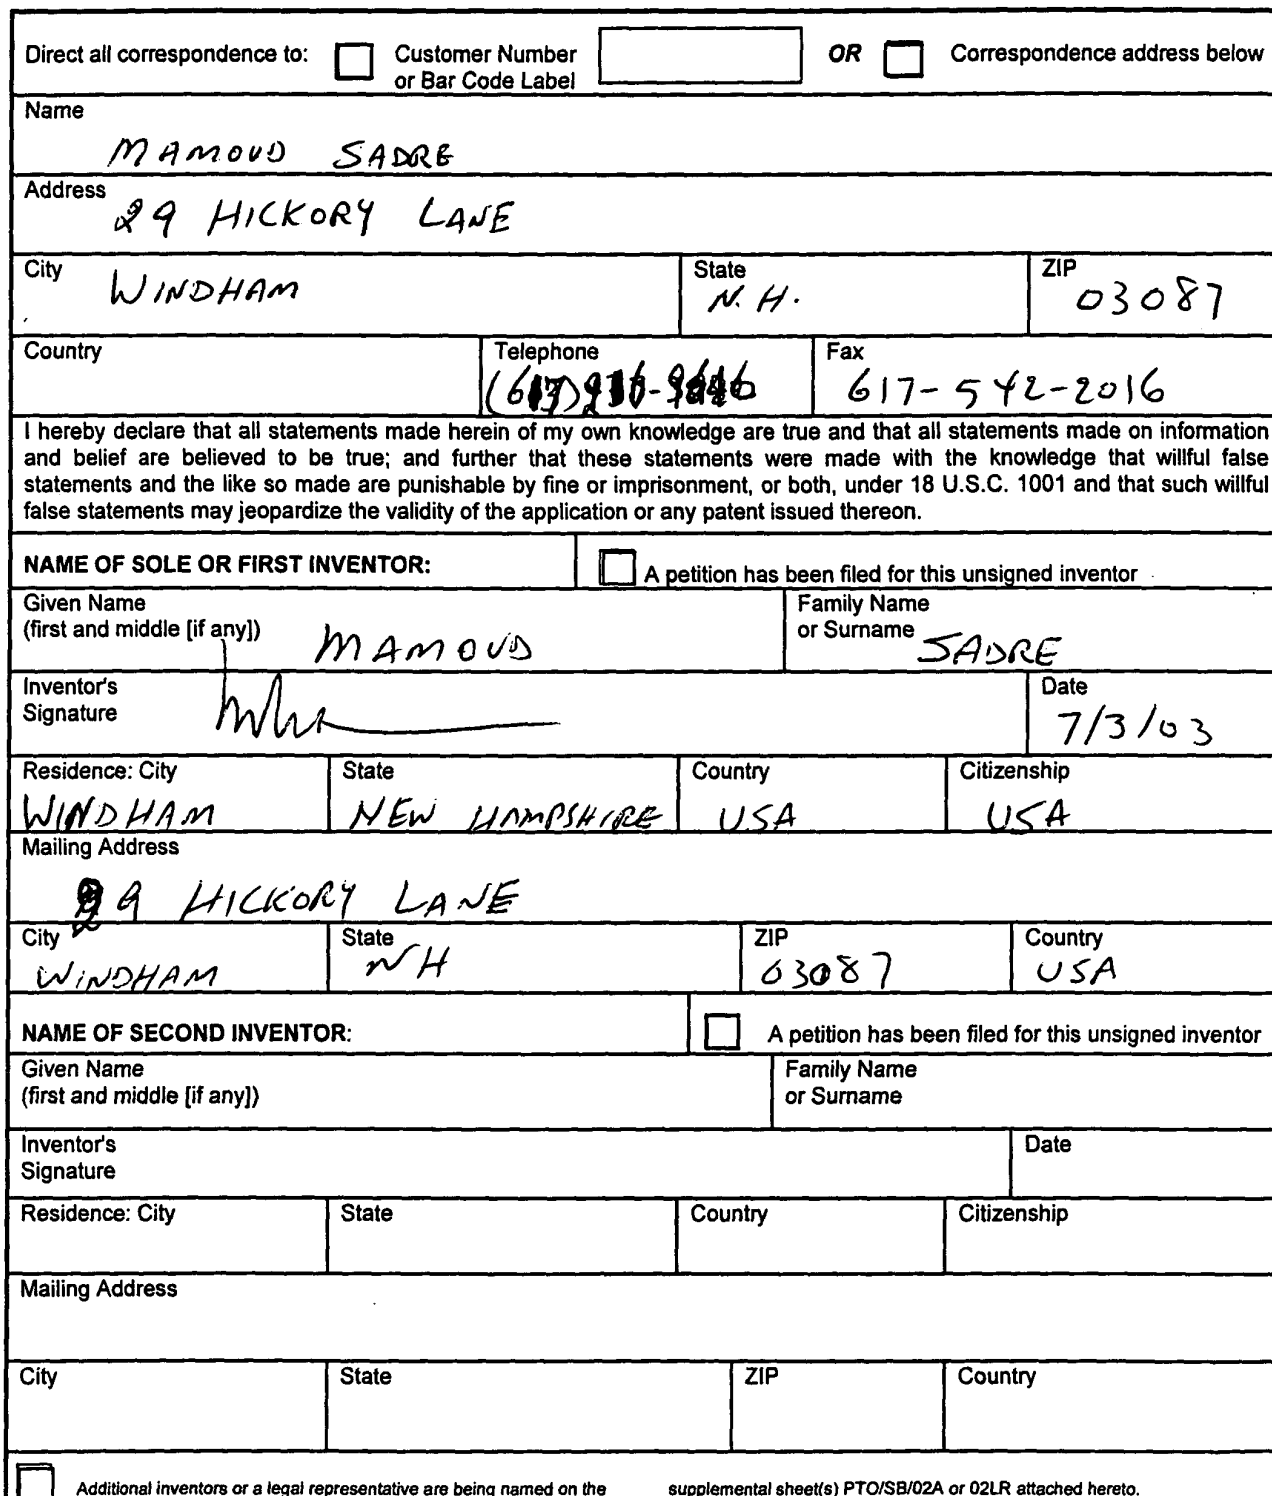 Direct all correspondence to: Customer Number or Bar Code Label OR Correspondence address below
Name
MAMOUD SADRE
Address
29 HICKORY LANE
City State ZIP
WINDHAM N.H. 03087
Country Telephone Fax
617-542-2016
I hereby declare that all statements made herein of my own knowledge are true and that all statements made on information
and belief are believed to be true; and further that these statements were made with the knowledge that willful false
statements and the like so made are punishable by fine or imprisonment, or both, under 18 U.S.C. 1001 and that such willful
false statements may jeopardize the validity of the application or any patent issued thereon.
NAME OF SOLE OR FIRST INVENTOR: A petition has been filed for this unsigned inventor
Given Name Family Name
(first and middle [if any]) MAMOUD or Surname SADRE
Inventor's Date
Signature 7/3/03
Residence: City State Country Citizenship
WINDHAM NEW HAMPSHIRE USA USA
Mailing Address
29 HICKORY LANE
City State ZIP Country
WINDHAM NH 03087 USA
NAME OF SECOND INVENTOR: A petition has been filed for this unsigned inventor
Given Name Family Name
(first and middle [if any]) or Surname
Inventor's Date
Signature
Residence: City State Country Citizenship
Mailing Address
City State ZIP Country
Additional inventors or a legal representative are being named on the supplemental sheet(s) PTO/SB/02A or 02LR attached hereto.